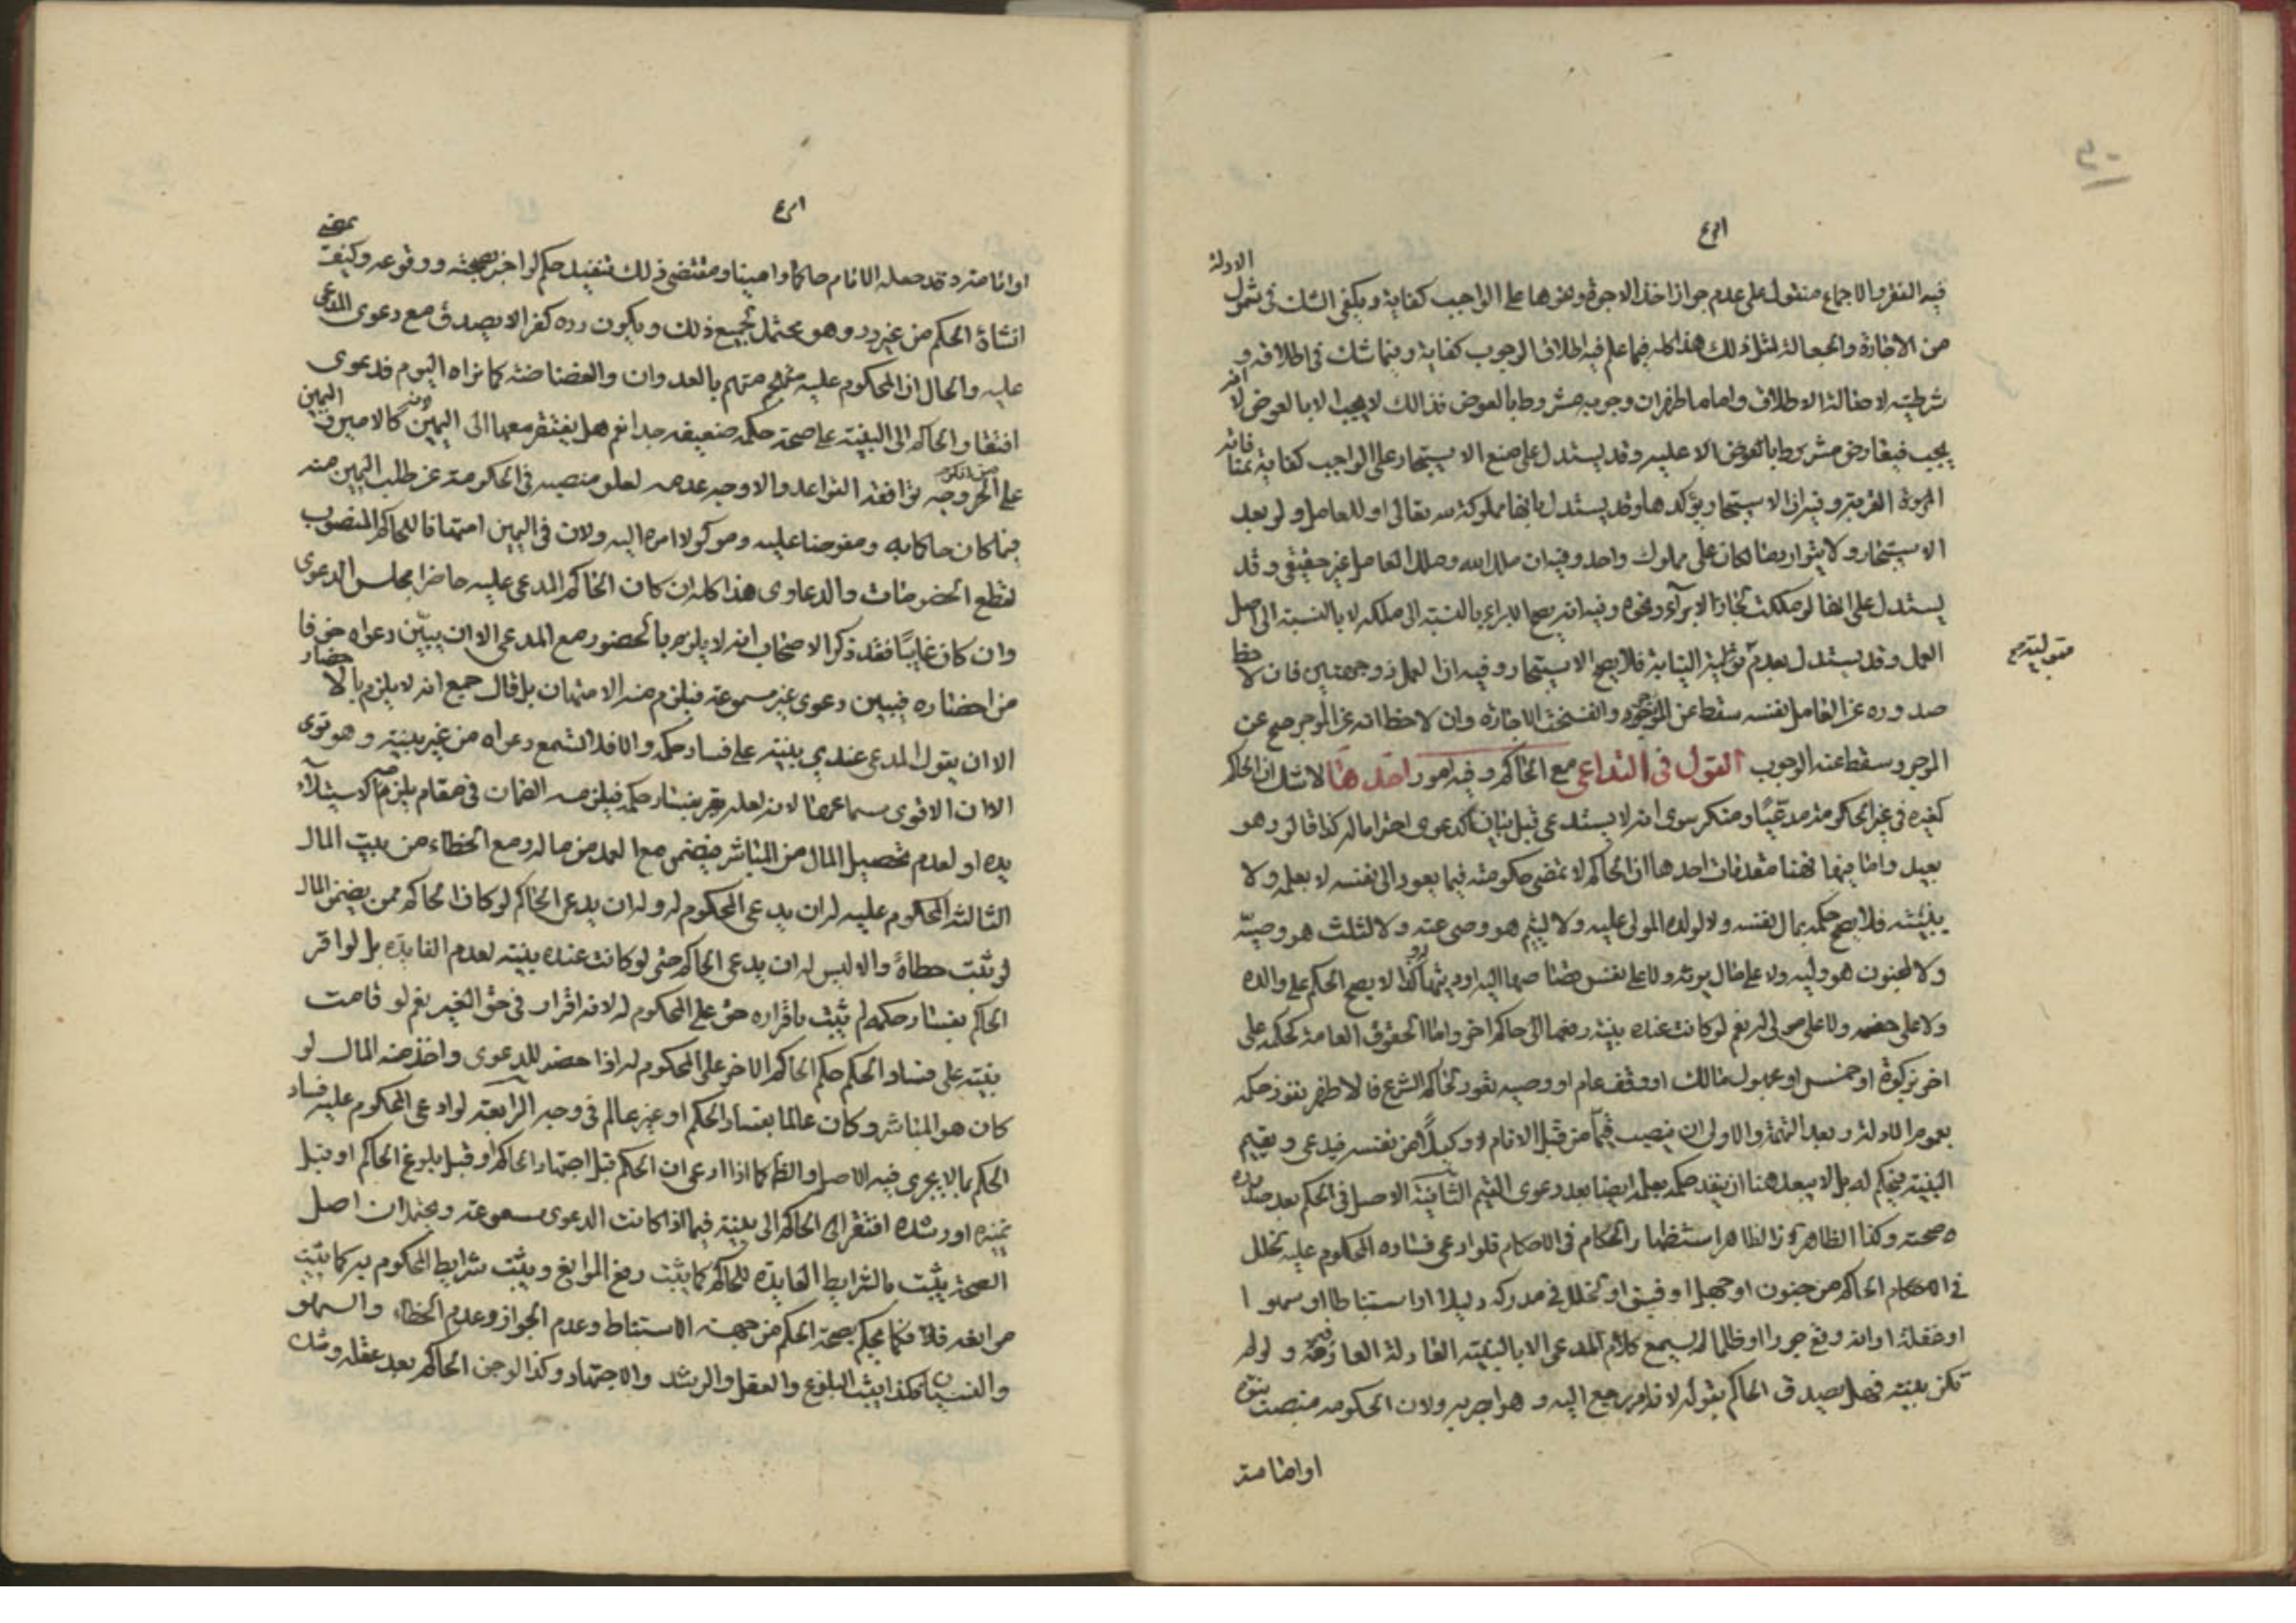 فيه التقرب الاجماع منقول على عدم جواز اخذ الاجرة ونحوها على الواجب كفاية ويكفي الشك في شمول الادلة
من الاجارة والجعالة لمثل ذلك هذا كله فيما علم فيه اطلاق الوجوب كفاية وفيما شك في اطلاقه و
شرطيته لاصالة الاطلاق واما ما ظهر ان وجوبه مشروط بالعوض فذالك لا يجب الا بالعوض لا انه
يجب فيعاوض مشروطا بالعوض الا عليه وقد يستدل على منع الاستيجار على الواجب كفاية فانه
القربة وفيه ان الاستيجار يؤكدها وقد يستدل بانها مملوكة لله تعالى او للعامل ولو بعد
الاستيجار ولا يتوارد مالكان على مملوك واحد وفيه ان ملك الله وملك العامل غير حقيقي وقد
يستدل على انها لو ملكت لجاز الابراء ونحوه وفيه انه يصح الابراء بالنسبة الى ملكه لا بالنسبة الى اصل
العمل وقد يستدل بعدم النيابة فلا يصح الاستيجار وفيه ان العمل ذو جهتين فان لاحظ
صدوره عن العامل بنفسه سقط عن الموجر وانفسخت الاجارة وان لاحظ انه عن الموجر صح عن
الموجر وسقط عنه الوجوب القول في التداعي مع الحاكم وفيه امور احدها لا شك ان الحاكم
كغيره في غير الحكومة مدعيا ومنكر سوى انه لا يستدعي قبل بيان الدعوى احتراما له كذا قالوا وهو
بعيد واما فيها فهنا مقدمات احدها ان الحاكم لا تمضي حكومته فيما يعود الى نفسه لا بعلمه ولا
ببينته فلا يصح حكمه بمال لنفسه ولا لولده المولى عليه ولا ليتيم هو وصي عنه ولا لثلث هو وصيه
ولا لمجنون هو وليه ولا على مال يورثه ولا على نفس كذا لا يصح الحكم على والده
ولا على خصمه ولا على مولى له نعم لو كانت عنده بينة رفعها الى حاكم اخر واما الحقوق العامة كحكمه على
اخر بزكوة او خمس او مجهول مالك او وقف عام او وصية تعود لحاكم الشرع فالاظهر نفوذ حكمه
بعموم الادلة وبعد التهمة والاولى ان ينصب قيما من قبل الامام او وكيلا من نفسه فيدعي ويقيم
البينة فيحكم له بل لا يبعد هنا ان ينفذ حكمه بعلمه ايضا بعد دعوى القيم الثانية الاصل في الحكم بعد صدوره
صحته وكذا الظاهر في الاحكام فلو ادعى فساده المحكوم عليه لخلل
في الحاكم من جنون او جهل او فسق او لخلل في مدركه دليلا او استنباطا او سهوا
او غفلة او انه وقع جورا او ظلما لم يسمع كلام المدعي الا بالبينة العادلة العارفة و لو لم
تكن بينة فهل يصدق الحاكم بقوله لانه امر يرجع اليه وهو اجر به ولان الحكومة منصب
او امامته
او امامته وقد جعله الامام حاكما وامينا ومقتضى ذلك تنفيذ حكمه لو اخبر بصحته ووقوعه وكيف يمضي
انشاؤه الحكم من غير رد وهو محتمل لجميع ذلك ويكون رده كفرا لا يصدق مع دعوى المدعي
عليه والحال ان المحكوم عليه متهم بالعدوان والغضاضة كما نراه اليوم فدعوى
افتقار الحاكم الى البينة على صحة حكمه ضعيفة جدا نعم هل يفتقر معها الى اليمين كالامين
على وجه توافقه القواعد والاوجه عدمه لعلو منصبه في الحكومة عن طلب اليمين منه
فيما كان حاكما به ومفوضا عليه وموكولا امره اليه ولان في اليمين امتهانا للحاكم المنصوب
لقطع الخصومات والدعاوى هذا كله ان كان الحاكم المدعى عليه حاضرا مجلس الدعوى
وان كان غائبا فقد ذكر الاصحاب انه لا يلزم بالحضور مع المدعي الا ان يبين دعواه خوفا
من احضاره فيبين دعوى غير مسموعة فيلزم منه الامتهان بل قال جمع انه لا يلزم بالاحضار
الا ان يقول المدعي عندي بينة على فساد حكمه والا فلا تسمع دعواه من غير بينة وهو قوي
الا ان الاقوى سماعها لانه لعله يقر بفساد حكمه فيلزمه الضمان في مقام يلزمه كاستيلاء
يده او لعدم تحصيل المال من المباشر فيضمن مع العمد من ماله ومع الخطاء من بيت المال
الثالثة المحكوم عليه له ان يدعي المحكوم له وله ان يدعي الحاكم لو كان الحاكم ممن يضمن المال
لو ثبت خطاؤه والا ليس له ان يدعي الحاكم حتى لو كانت عنده بينة لعدم الفايدة بل لو اقر
الحاكم بفساد حكمه لم يثبت باقراره حق على المحكوم له لانه اقرار في حق الغير نعم لو قامت
بينة على فساد الحكم حكم الحاكم الاخر على المحكوم له اذا حضر للدعوى واخذ منه المال لو
كان هو المباشر وكان عالما بفساد الحكم او غير عالم في وجه الرابعة لو ادعى المحكوم عليه فساد
الحكم بما لا يجري فيه الاصل والظاهر كما اذا ادعى ان الحكم قبل اجتهاد الحاكم او قبل بلوغ الحاكم او قبل
تميزه او رشده افتقر الحاكم الى بينة فيما اذا كانت الدعوى مسموعة ويحتمل ان اصل
الصحة يثبت بالشرايط العايدة للحاكم كما يثبت رفع الموانع ويثبت شرايط المحكوم به كما يثبت
موانعه فكما يحكم بصحة الحكم من جهة الاستنباط وعدم الجواز وعدم الخطاء والسهو
والنسيان فكذا يثبت البلوغ والعقل والرشد والاجتهاد وكذا لو جن الحاكم بعد عقله وشك